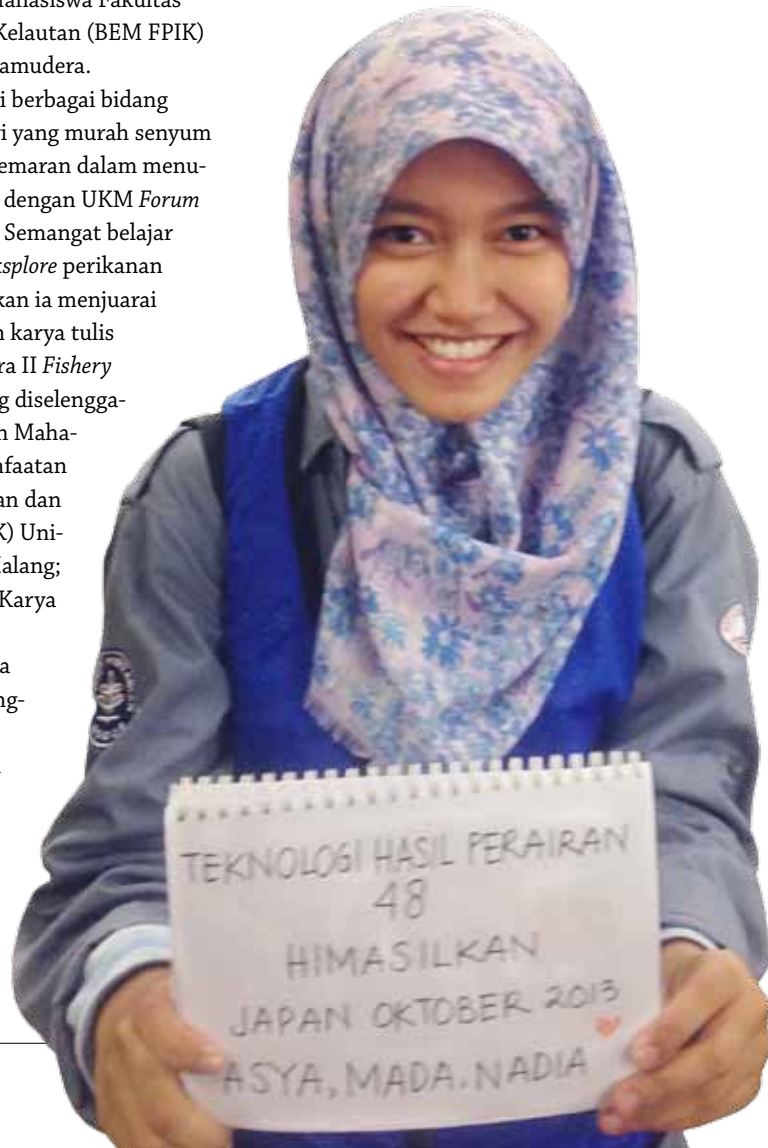 ahasiswa Fakultas
Kelautan (BEM FPIK)
amudera.
i berbagai bidang
i yang murah senyum
emaran dalam menu-
dengan UKM Forum
Semangat belajar
splore perikanan
kan ia menjuarai
n karya tulis
ra II Fishery
g diselengga-
n Maha-
nfaatan
an dan
K) Uni-
alang;
Karya
a
ng-
TEKNOLOGI HASIL PERAIRAN
48
HIMASILKAN
JAPAN OKTOBER 2013
ASYA, MADA, NADIA